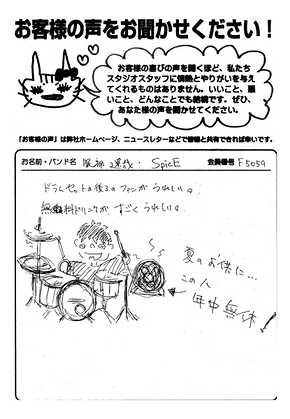 お客様の声をお聞かせください！
お客様の喜びの声を聞くほど、私たち
スタジオスタッフに情熱とやりがいを与え
てくれるものはありません。いいこと、悪
いこと、どんなことでも結構です。ぜひ、
あなた様の声を聞かせてください。
「お客様の声」は弊社ホームページ、ニュースレターなどで皆様と共有できれば幸いです。
お名前・バンド名 SpicE 会員番号 F5059
ドラムセットの後ろのファンがうれしい。
無料ドリンクがすごくうれしい。
夏のお供に…
この人
年中無休！